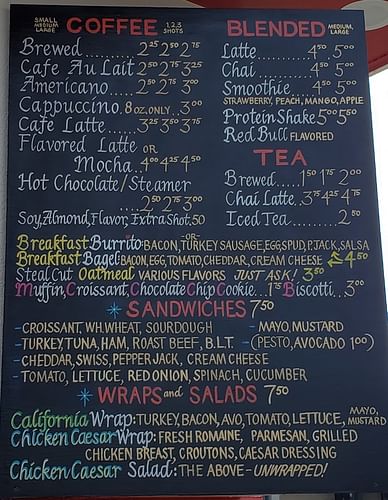 SMALL MEDIUM LARGE COFFEE 1,2,3 SHOTS
Brewed........2²⁵ 2⁵⁰ 2⁷⁵
Cafe Au Lait 2⁵⁰ 2⁷⁵ 3²⁵
Americano.....2⁵⁰ 2⁷⁵ 3⁰⁰
Cappuccino. 8 OZ. ONLY...3⁰⁰
Cafe Latte......3²⁵ 3⁵⁰ 3⁷⁵
Flavored Latte OR
Mocha..4⁰⁰ 4²⁵ 4⁵⁰
Hot Chocolate/Steamer
2⁵⁰ 2⁷⁵ 3⁰⁰
Soy, Almond, Flavor, Extra Shot .50
BLENDED MEDIUM, LARGE
Latte..........4⁵⁰ 5⁰⁰
Chai..........4⁵⁰ 5⁰⁰
Smoothie....4⁵⁰ 5⁰⁰
STRAWBERRY, PEACH, MANGO, APPLE
Protein Shake 5⁰⁰ 5⁵⁰
Red Bull FLAVORED
TEA
Brewed.....1⁵⁰ 1⁷⁵ 2⁰⁰
Chai Latte..3⁷⁵ 4²⁵ 4⁷⁵
Iced Tea.........2⁵⁰
-OR-
Breakfast Burrito: BACON, TURKEY SAUSAGE, EGG, SPUD, P.JACK, SALSA
Breakfast Bagel: BACON, EGG, TOMATO, CHEDDAR, CREAM CHEESE 4⁵⁰
Steal Cut Oatmeal VARIOUS FLAVORS JUST ASK! 3⁵⁰
Muffin, Croissant, Chocolate Chip Cookie...1⁷⁵ Biscotti...3⁰⁰
* SANDWICHES 7⁵⁰
- CROISSANT, WH. WHEAT, SOURDOUGH - MAYO, MUSTARD
- TURKEY, TUNA, HAM, ROAST BEEF, B.L.T. - (PESTO, AVOCADO 1⁰⁰)
- CHEDDAR, SWISS, PEPPER JACK, CREAM CHEESE
- TOMATO, LETTUCE, RED ONION, SPINACH, CUCUMBER
* WRAPS and SALADS 7⁵⁰
California Wrap: TURKEY, BACON, AVO, TOMATO, LETTUCE, MAYO, MUSTARD
Chicken Caesar Wrap: FRESH ROMAINE, PARMESAN, GRILLED
CHICKEN BREAST, CROUTONS, CAESAR DRESSING
Chicken Caesar Salad: THE ABOVE - UNWRAPPED!